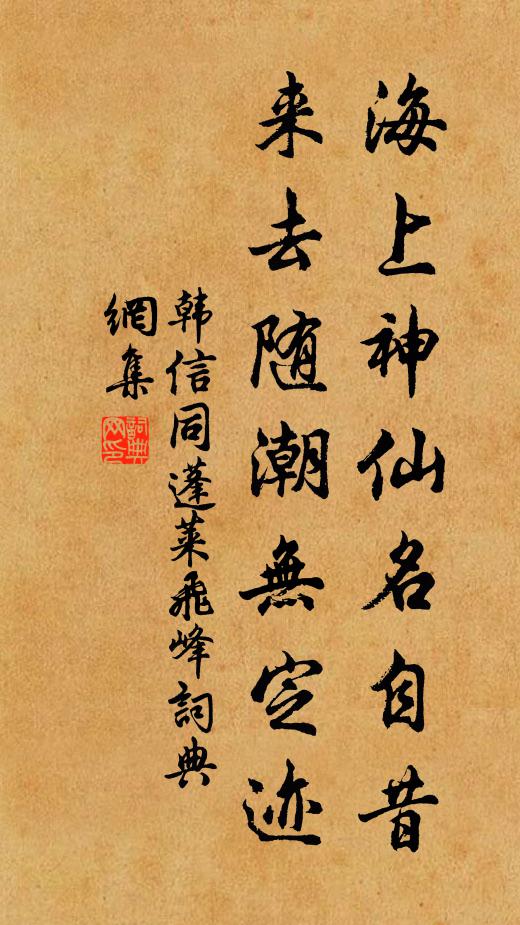 海上神仙名自昔
来去随潮無定迹
韩信同蓬莱飛峰詞典
網集
詞典网印